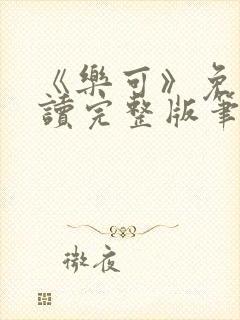 《樂可》免
讀完整版筆
微夜